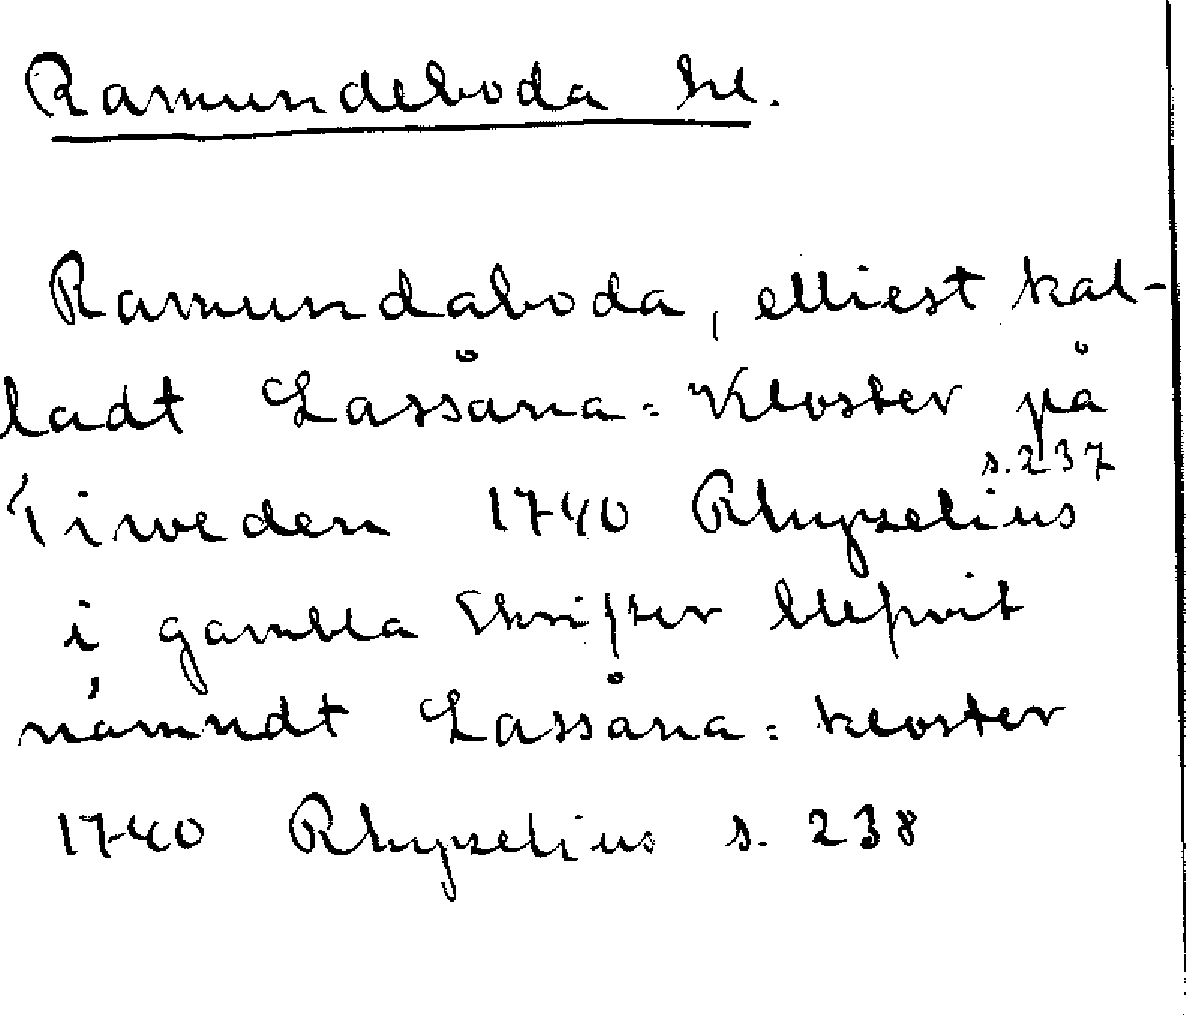 Ramundeboda kl.
Ramundaboda, elliest kal-
ladt Lassåna=Kloster på
Tiweden 1740 Rhyzelius s. 237
i gambla Skrifter blefwit
nämndt Lassåna=kloster
1740 Rhyzelius s. 238